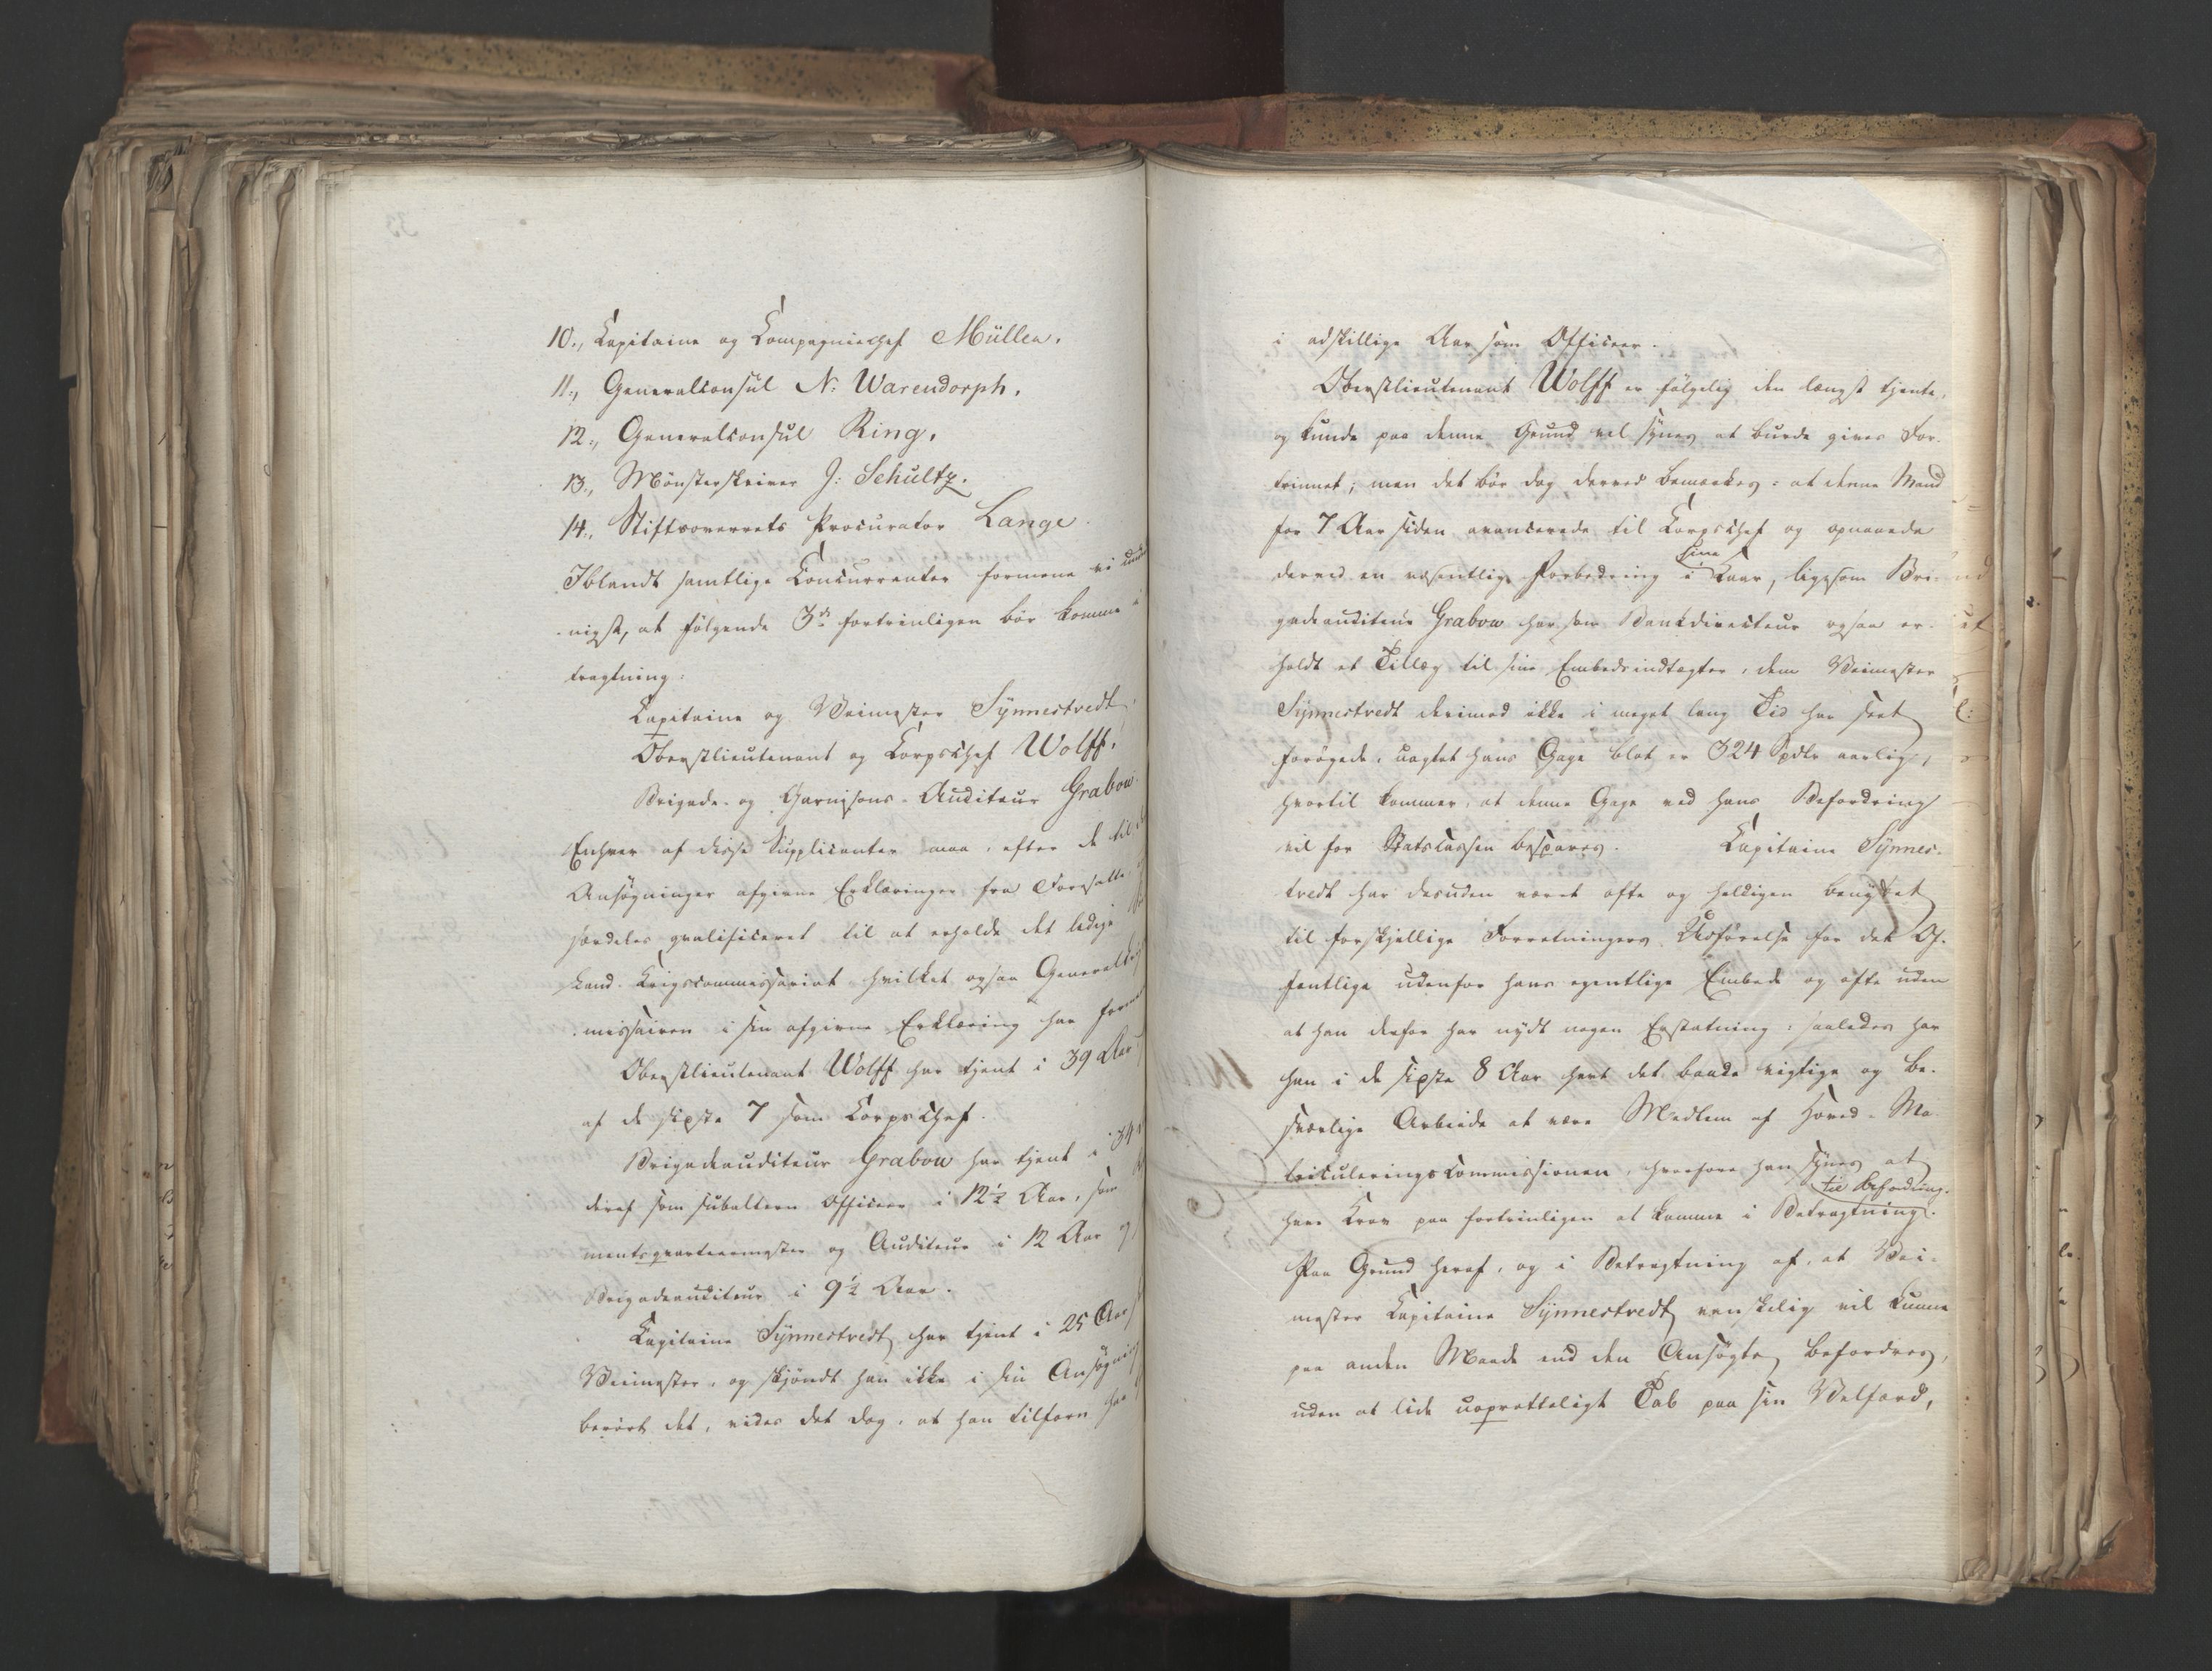 10., Capitaine og Compagniechef Müller.
11., Generalconsul N: Warendorph.
12., Generalconsul Ring.
13., Mønsterskriver J: Schultz.
14., Stiftsoverrets Procurator Lange.
Iblandt samtlige Concurrenter formene vi under-
nigst, at følgende 3de fortrinligen bør komme i
tragtning:
Capitaine og Veimester Synnestvedt,
Oberstlieutenant og Corpschef Wolff,
Brigade- og Garnisons-Auditeur Grabow
Enhver af disse Supplicanter maa, efter de til
Ansøgninger afgivne Erklæringer fra Foresatte
særdeles qvalificeret til at erholde det ledige
Land-Krigscommissariat hvilket ogsaa General
missairen i sin afgivne Erklæring har
Oberstlieutenant Wolff har tjent i 39 Aar,
af de sidste 7 som Corpschef.
Brigadeauditeur Grabow har tjent i 34
deraf som subaltern Officeer i 12½ Aar, som
mentsqvarteermester og Auditeur i 12 Aar og
Brigadeauditeur i 9½ Aar.
Capitaine Synnestvedt har tjent i 25 Aar
Veimester, og skjøndt han ikke i sin Ansøgning
berørt det, vides det dog, at han tilforn har
i adskillige Aar som Officeer.
Oberstlieutenant Wolff er følgelig den længst tjente,
og kunde paa denne Grund vel synes at burde gives For-
trinnet; men det bør dog derved bemærkes: at denne Mand
for 7 Aar siden avancerede til Corpschef og opnaaede
derved en væsentlig Forbedring i sine Kaar, ligesom Bri-
gadeauditeur Grabow har som Bankdirecteur ogsaa er-
holdt et Tillæg til sine Embedsindtægter, dem Veimester
Synnestvedt derimod ikke i meget lang Tid har seet
forøgede, uagtet hans Gage blot er 324 Spdlr aarlig,
hvortil kommer, at denne Gage ved hans Befordring
vil for Statscassen bespares. Capitaine Synnes-
tvedt har desuden været ofte og heldigen benyttet
til forskjellige Forretningers Udførelse for det Of-
fentlige udenfor hans egentlige Embede og ofte uden
at han derfor har nydt nogen Erstatning: saaledes har
han i de sidste 8 Aar havt det baade vigtige og be-
sværlige Arbeide at være Medlem af Hoved-Ma-
triculeringscommissionen, hvorfore han synes at
have Krav paa fortrinligen at komme i Betragtning til Befordring.
Paa Grund heraf, og i Betragtning af, at Vei-
mester Capitaine Synnestvedt vanskelig vil kunne
paa anden Maade end den Ansøgte befordres,
uden at lide uoprætteligt Tab paa sin Velfærd,